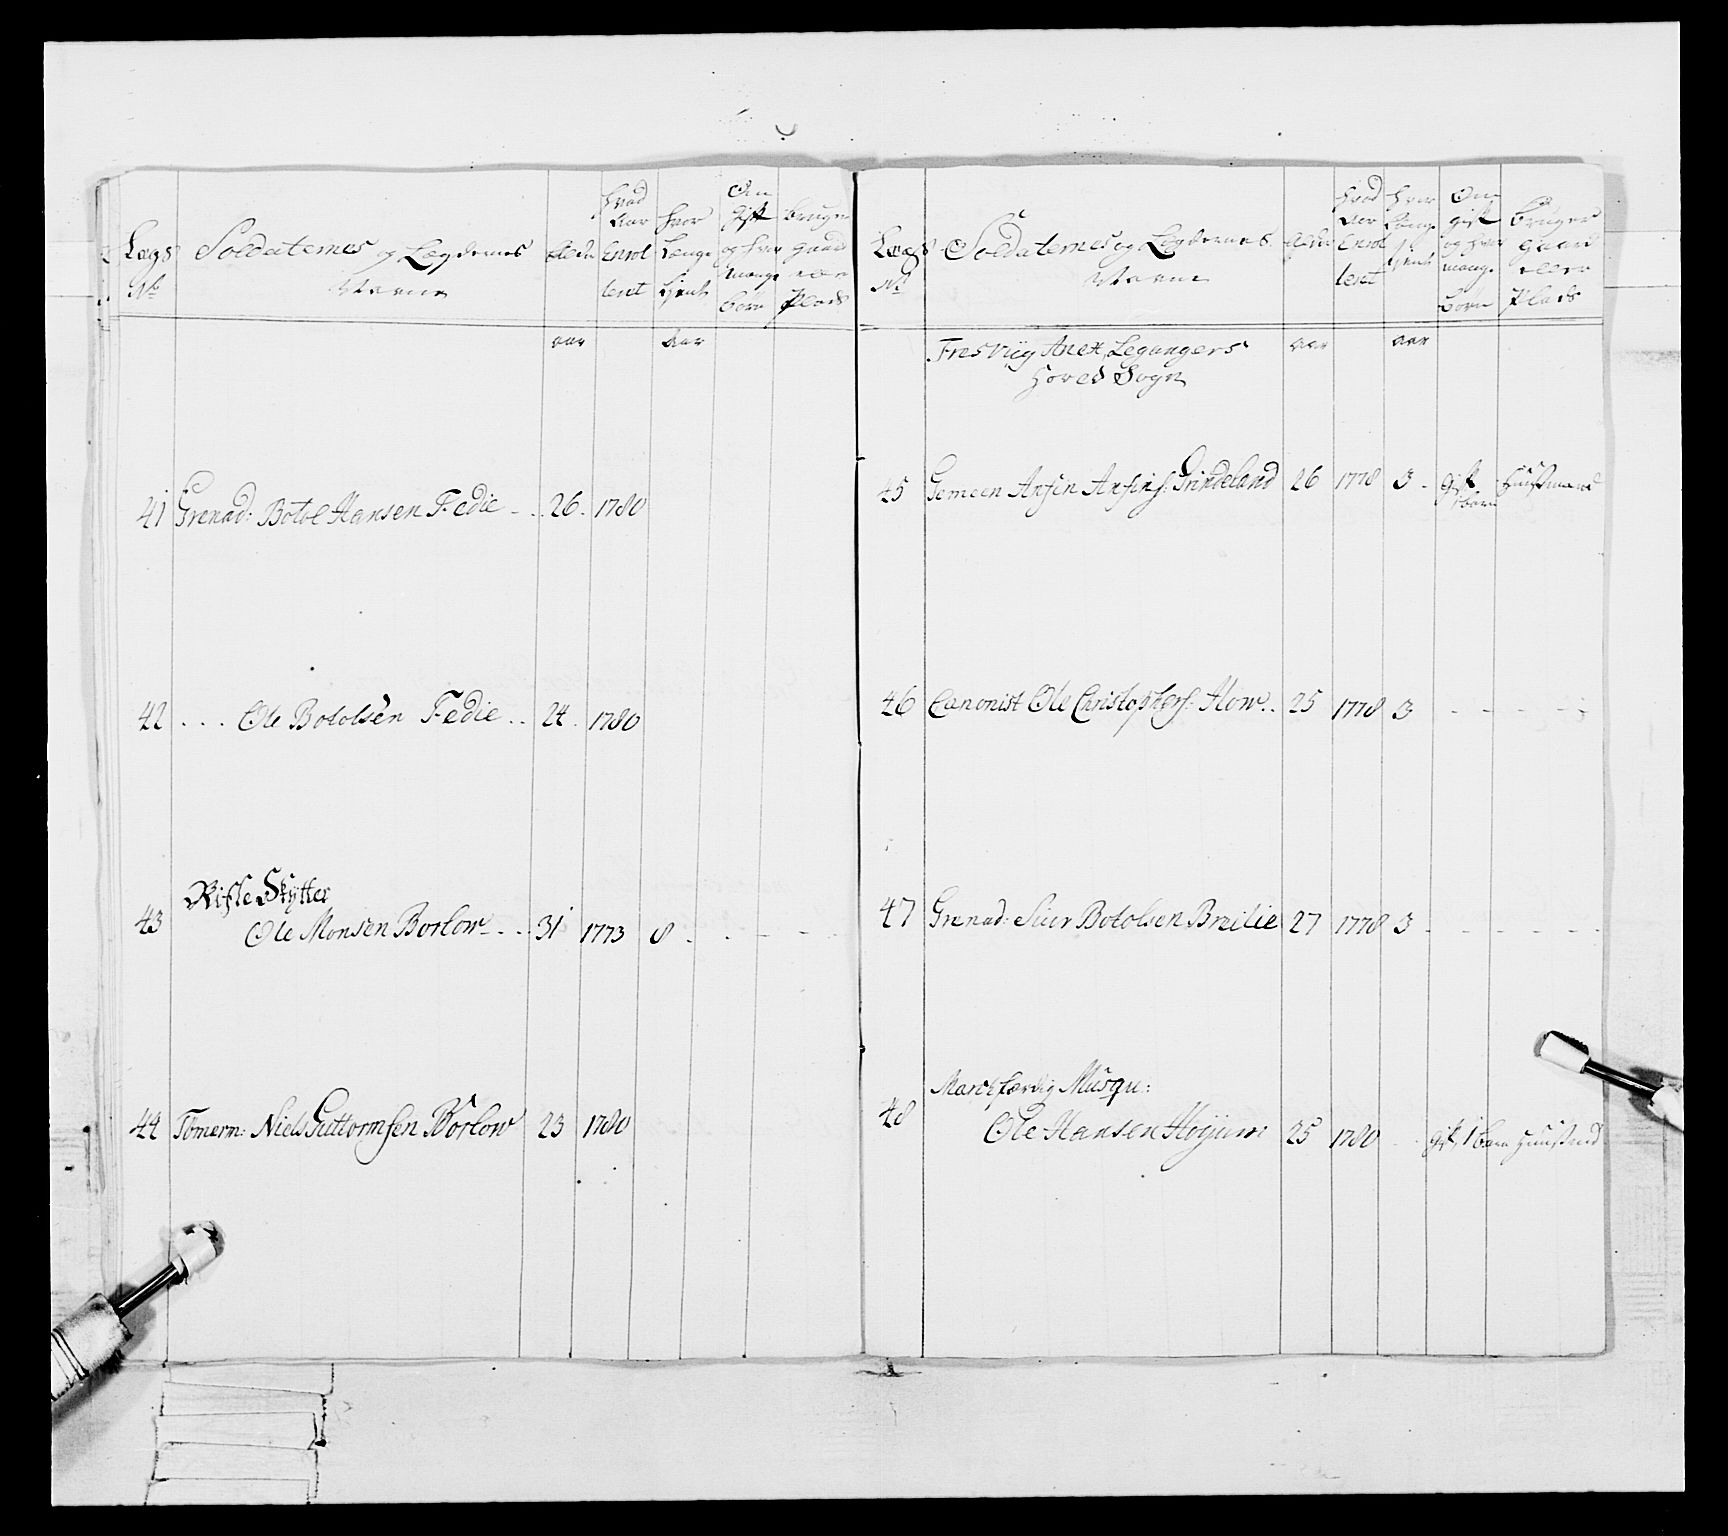 Lægs No
Soldaternes og Lægdernes Navne
Alder
Hvad Aar Enrolleret
Hvor Længe tient
Om Gift og hvor mange børn
Bruger gaard eller Plads
aar
Aar
41 Grenad: Botol Hansen Fedie - . . 26. 1780
42 . . . Ole Botolsen Fedie . . 24. 1780
43 Rifle Skytter
Ole Monsen Borlow - . . 31 1773 8 - - - - -
44 Tömerm: Niels Guttormsen Borlow 23 1780
Lægs No
Soldaternes og Lægdernes Navne
Alder
Hvad Aar Enrolleret
Hvor Længe tient
Om gift og hvor mange børn
Bruger gaard eller Plads
Fresviig Anex, Legangers
Hoved Sogn
aar
aar
45 Gemeen Ansin Ansins: Grindeland 26 1778 3 - gift 1 barn Huusmand
46 Canonist Ole Christophers: How . . 25 1778 3 - - - - -
47 Grenad: Siur Botolsen Brælie 27 1778 3 - - - - -
48 Marchfærdig Musqu:
Ole Hansen Höyum 25 1780 - gift, 1 barn Huusmd